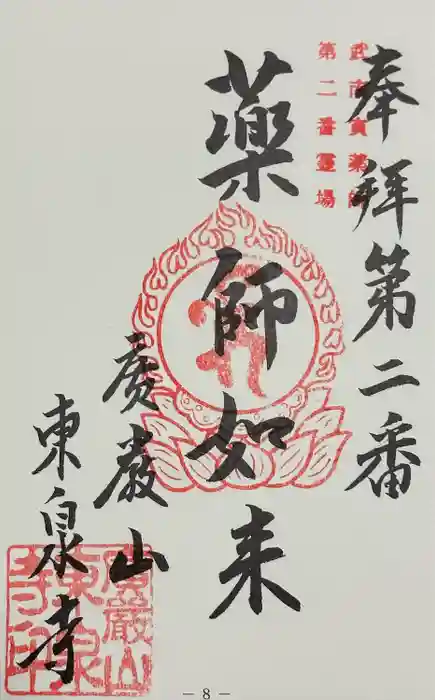 奉拝第二番
武南寅薬師
第二番霊場
薬師如来
慶巌山
東泉寺
慶巌山
東泉
寺印
— 8 —